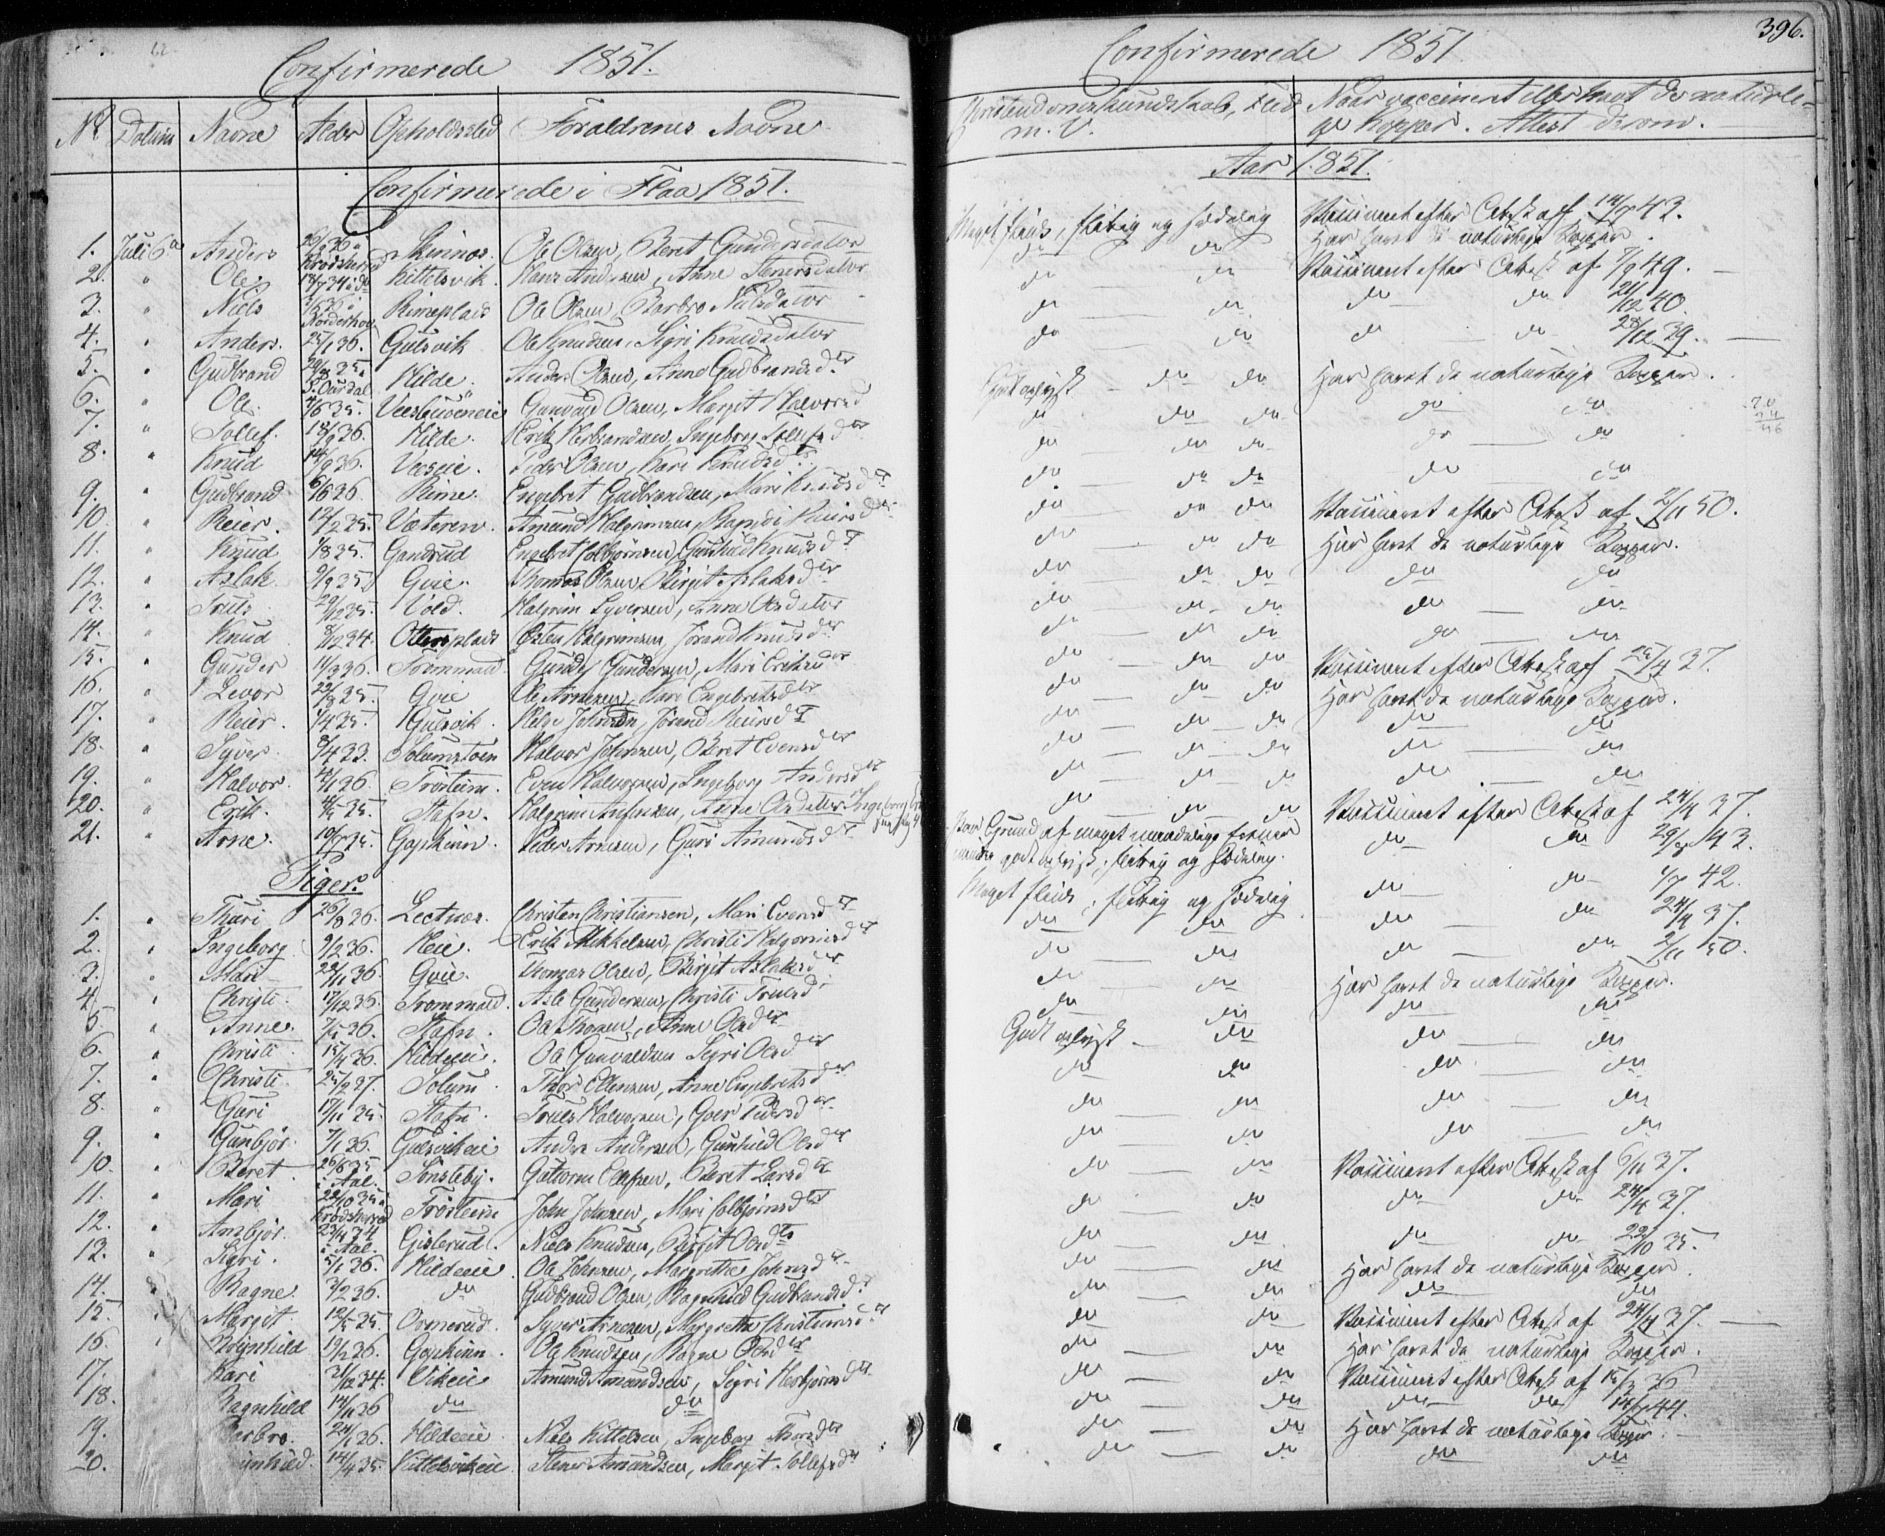 Confirmerede 1851.
No Datum Navne Alder Opholdssted Forældrenes Navne
Confirmerede i Flaa 1851.
1. Juli 6te Anders Skinnes Ole Olsen, Beret Gundersdatter
2. " Ole Kittelsvik. Hans Andersen, Anne
3. " Niels Rimeplads Ole Olsen, Barbro Nielsdatter
4. " Anders. 25/1 36. Gulsvik Ole Knudsen, Sigri Knudsdatter
5. " Gudbrand Hilde. Anders Olsen, Anne Gudbrandsd.
6. " Ole. 4/6 35. Gunvald Olsen, Margit Halvorsd
7. " Tollef. 18/9 36. Hilde. Erik Herbrandsen, Ingeborg Tollefsdtr
8. " Knud 14/9 36. Veseie. Peder Olsen, Kari Knudsdtr
9. " Gudbrand 6/6 36. Rime. Engebret Gudbrandsen, Mari Knudsdtr
10. " Reier. 12/2 35. Væteren. Amund Halgrimsen, Ragndi Reiersdtr
11. " Knud 1/8 35. Gandrud Engebret Colbjørnsen, Gunhild Knudsdtr
12. " Aslak. 9/9 35. Gvie. Thomas Olsen, Birgit Aslaksdtr
13. " Truls. Vold. Halgrim Syversen, Anne Olsdatter
14. " Knud 8/12 34. Ottersplads Østen Halgrimsen, Jørand Knudsdtr
15. " Gunder 11/3 36. Trommald. Gunder Gundersen, Mari Eriksdtr
16. " Levor 22/8 35. Gvie Ole Arnesen, Kari Engebretsdtr
17. " Reier. 1/4 35. Gulsvik. Helge Johnsen, Jørand Reiersdtr
18. " Syver. 8/4 33. Solumstoen Halvor Johnsen, Beret Evensdtr
19. " Halvor. Trøstem. Even Halvorsen, Ingeborg Andersdtr
20. " Erik. Stafn. Halgrim Anfinsen, Anne Olsdatter Ingeborg
21. " Arne. Gapkinn. Peder Arnesen, Guri Amundsdtr
Piger.
1. " Thuri 26/8 36. Lectnes. Christen Christiansen, Mari Evensdtr
2. " Ingeborg 9/2 36. Heie. Erik Mikkelsen, Christi Halgrimsdtr
3. " Mari Gvie. Thomas Olsen, Birgit Aslaksdtr
4. " Christi. 17/12 35. Trommald. Asle Gundersen, Christi Trulsd.
5. " Anne. Stafn. Ole Thorsen, Anne Olsdtr
6. " Christi Hildeeie. Ole Gunvaldsen Sigri Olsdtr
7. " Christi. Solum. Thor Ellensen, Anne Engebretsdtr
8. " Guri 17/11 35. Stafn. Truls Halvorsen, Goer Pedersdtr
9. " Gunbjør. 7/1 36. Gulsvikeie Anders Andersen, Gunhild Olsdtr
10. " Beret. 26/6 35 i Aal. Sønsleby. Guttorm Olsen, Beret Larsdtr
11. " Mari Krødsherred Trøstem John Johnsen, Mari Colbjørnsdtr
12. " Ambjør. i Aal. Gislerud. Niels Knudsen, Birgit Olsdtr
13. " Sigri. 5/1 36. Hildeeie Ole Johnsen, Margrethe Johnsdtr
14. " Ragne 3/2 36. do Gudbrand Olsen, Ragnhild Gudbrandsd.
15. " Margit Ormerud. Syver Arnesen, Margrethe Christiansd.
16. " Brynhild 19/2 36. Gapkinn. Ole Knudsen, Ragne Olsdtr
17. Kari 21/12 34. Vikeie Amund Amundsen, Sigri Herbjørnsdtr
18. Ragnhild do do
19. Barbro Hildeeie Niels Kittelsen, Ingeborg Thorsdtr
20. Kittelsvikeie. Stener Amundsen, Margit Tollefsdtr
396.
Confirmerede 1851
Christendomskundskab, Flid m. V. Naar vaccineret eller havt de naturlige Kopper. Attest derom.
Aar 1851.
Meget flink, flittig og sædelig Vaccineret efter Attest af 43.
do do Har havt de naturlige Kopper.
do do Vaccineret efter Attest af 7/9 49.
do do do do 21/12 40.
do do do do 28/12 39.
Godt oplyst do do Har havt de naturlige Kopper.
do do do do do
do do do do do
do do do do do
do do do Vaccineret efter Attest af 2/11 50.
do do do Har havt de naturlige Kopper.
do do do do do
do do do do do
do do do do do
do do do Vaccineret efter Attest af 37.
do do do Har havt de naturlige Kopper.
do do do do do
do do do do do
do do do do do
do do do Vaccineret efter Attest af 24/4 37.
Grund af meget maadelige Evner
godt oplyst, flittig og sædelig. do do 43.
Meget flink, flittig og sædelig do do 42.
do do do do 24/4 37.
do do do do 2/11 50.
do do Har havt de naturlige Kopper.
do do do do
Godt oplyst do do do
do do do do
do do do do
do do do do
do do Vaccineret efter Attest af 6/11 37.
do do do do 24/4 37.
do do do do 22/10 35.
do do Har havt de naturlige Kopper.
do do do do
do do Vaccineret efter Attest af 24/4 37.
do do Har havt de naturlige Kopper.
do do Vaccineret efter Attest af 36
do do do do 44.
do do Har havt de naturlige Kopper.
do do do do